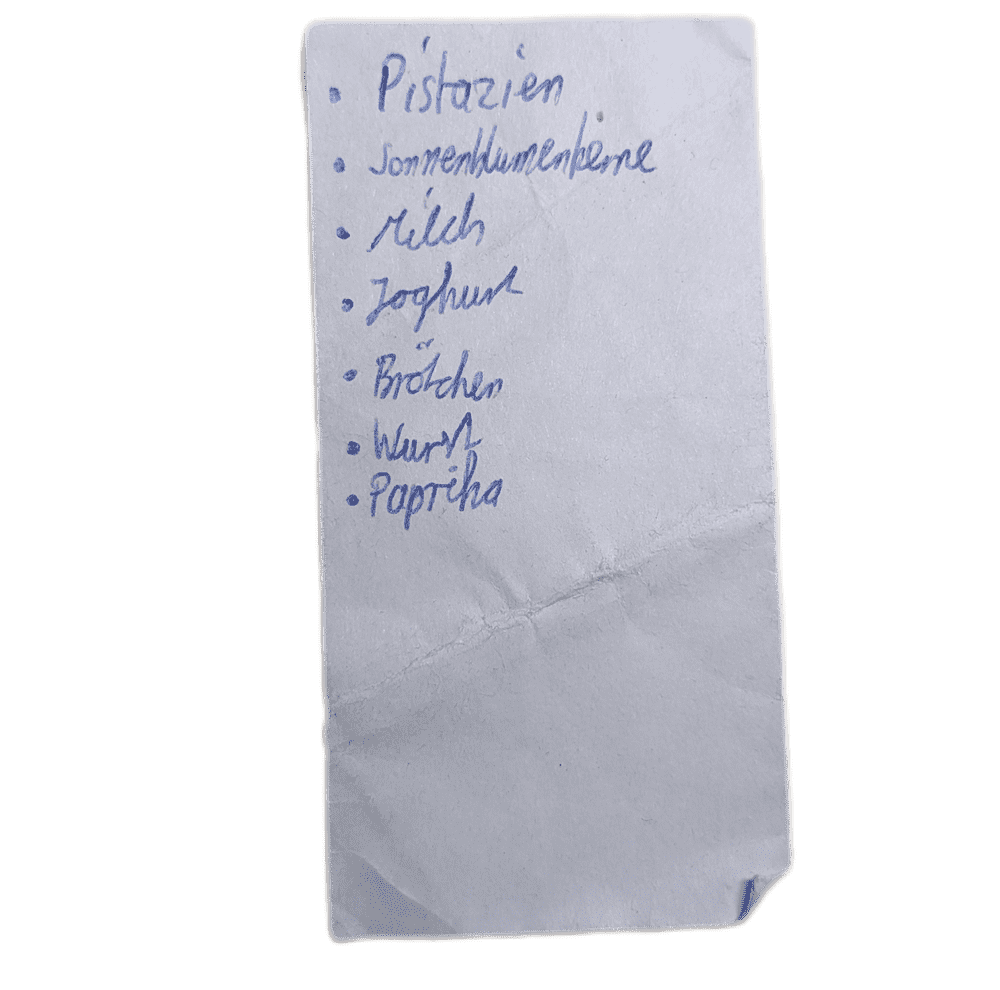 • Pistazien
• Sonnenblumenkerne
• Milch
• Joghurt
• Brötchen
• Wurst
• Paprika